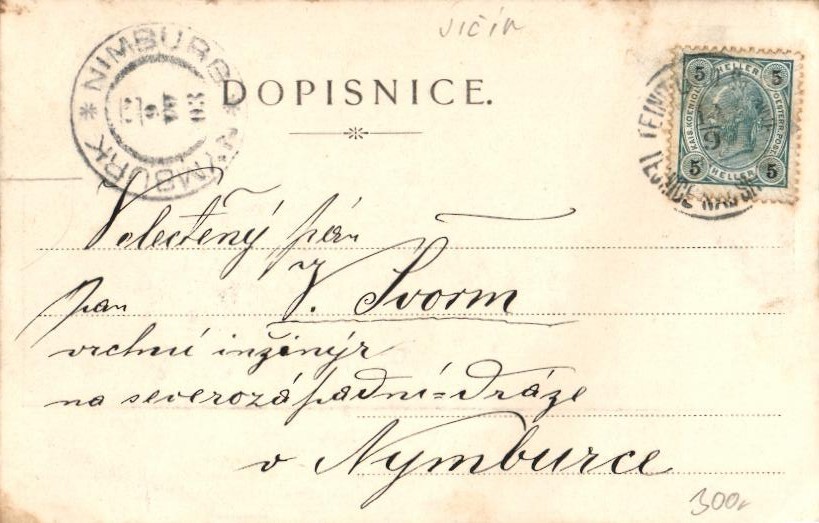 JIČÍN
NIMBURG * NIMBURK *
DOPISNICE.
5 HELLER 5
KAIS. KOENIGL. OESTERR. POST.
5 HELLER 5
Velectěný pán
pan V. Švorm
vrchní inžinýr
na severozápadní=dráze
v Nymburce
300,